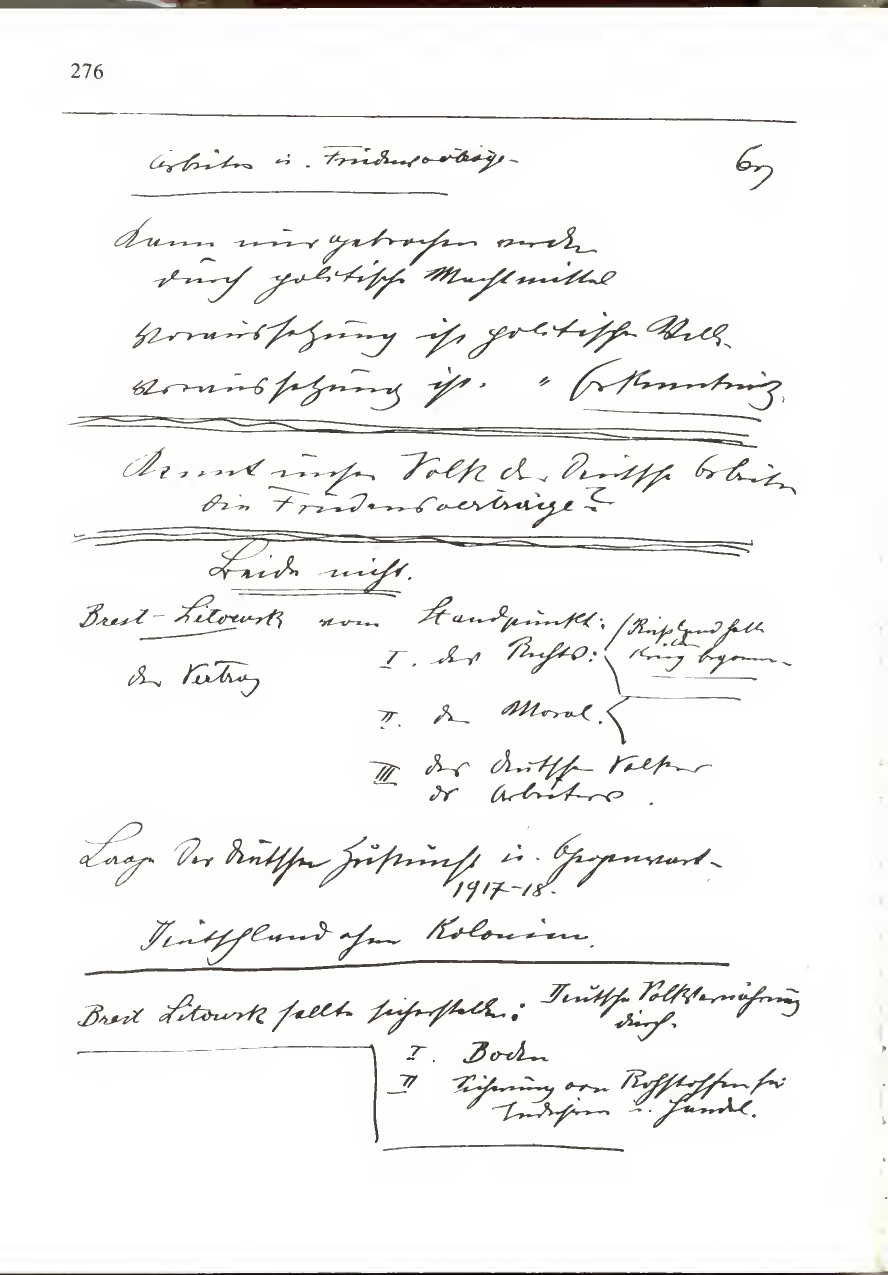 276
Arbeiter u. Friedensverträge - 6)
Kann nur gebrochen werden
durch politische Machtmittel
Voraussetzung ist politischer Wille.
Voraussetzung ist. " Erkenntnis.
Kennt unser Volk der Deutsche Arbeiter
die Friedensverträge?
Beide nicht.
Brest-Litowsk vom Standpunkt: Rußland hatte
den
I. des Rechts: Krieg begonnen -
der Vertrag
II. der Moral.
III des deutschen Volkes
des Arbeiters.
Lage der deutschen Zukunft u. Gegenwart -
1917-18.
Deutschland ohne Kolonien.
Brest Litowsk sollte sicherstellen: Deutsche Volksernährung
durch.
I. Boden
II Sicherung von Rohstoffen für
Industrie u. Handel.